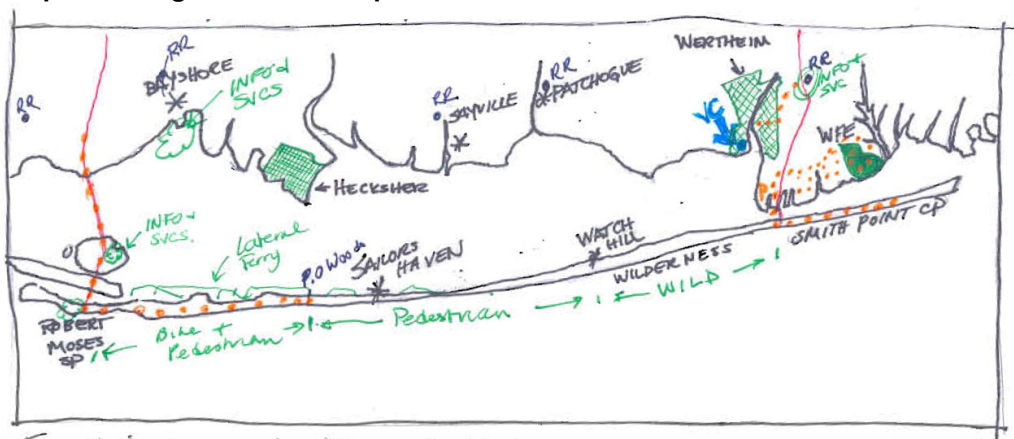 RR
RR
BAYSHORE
INFO &
SVCS
RR
SAYVILLE
RR
PATCHOGUE
WERTHEIM
VC
RR
INFO +
SVC
WFE
HECKSHER
INFO +
SVCS.
Lateral
Ferry
P.O Woods
SAILORS
HAVEN
WATCH
HILL
WILDERNESS
SMITH POINT CP
ROBERT
MOSES
SP
Bike +
Pedestrian
Pedestrian
WILD